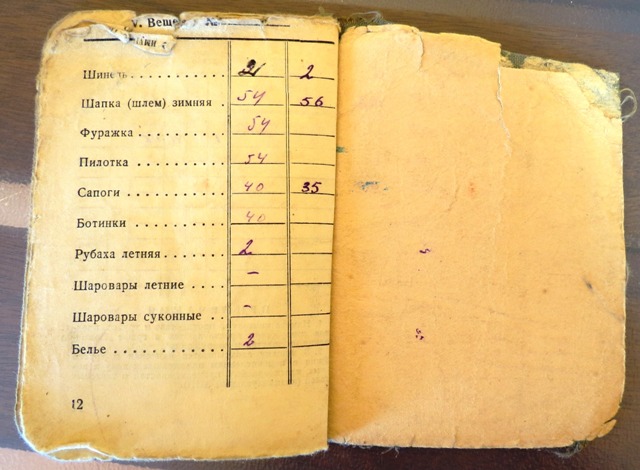 V. Веще № 
Шинель 2 2
Шапка (шлем) зимняя 54 56
Фуражка 54
Пилотка 54
Сапоги 40 35
Ботинки 40
Рубаха летняя 2
Шаровары летние –
Шаровары суконные –
Белье 2
12